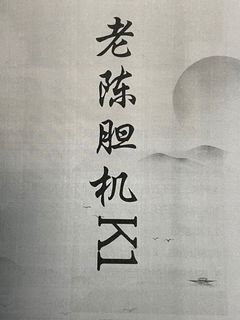 老陈胆机K1